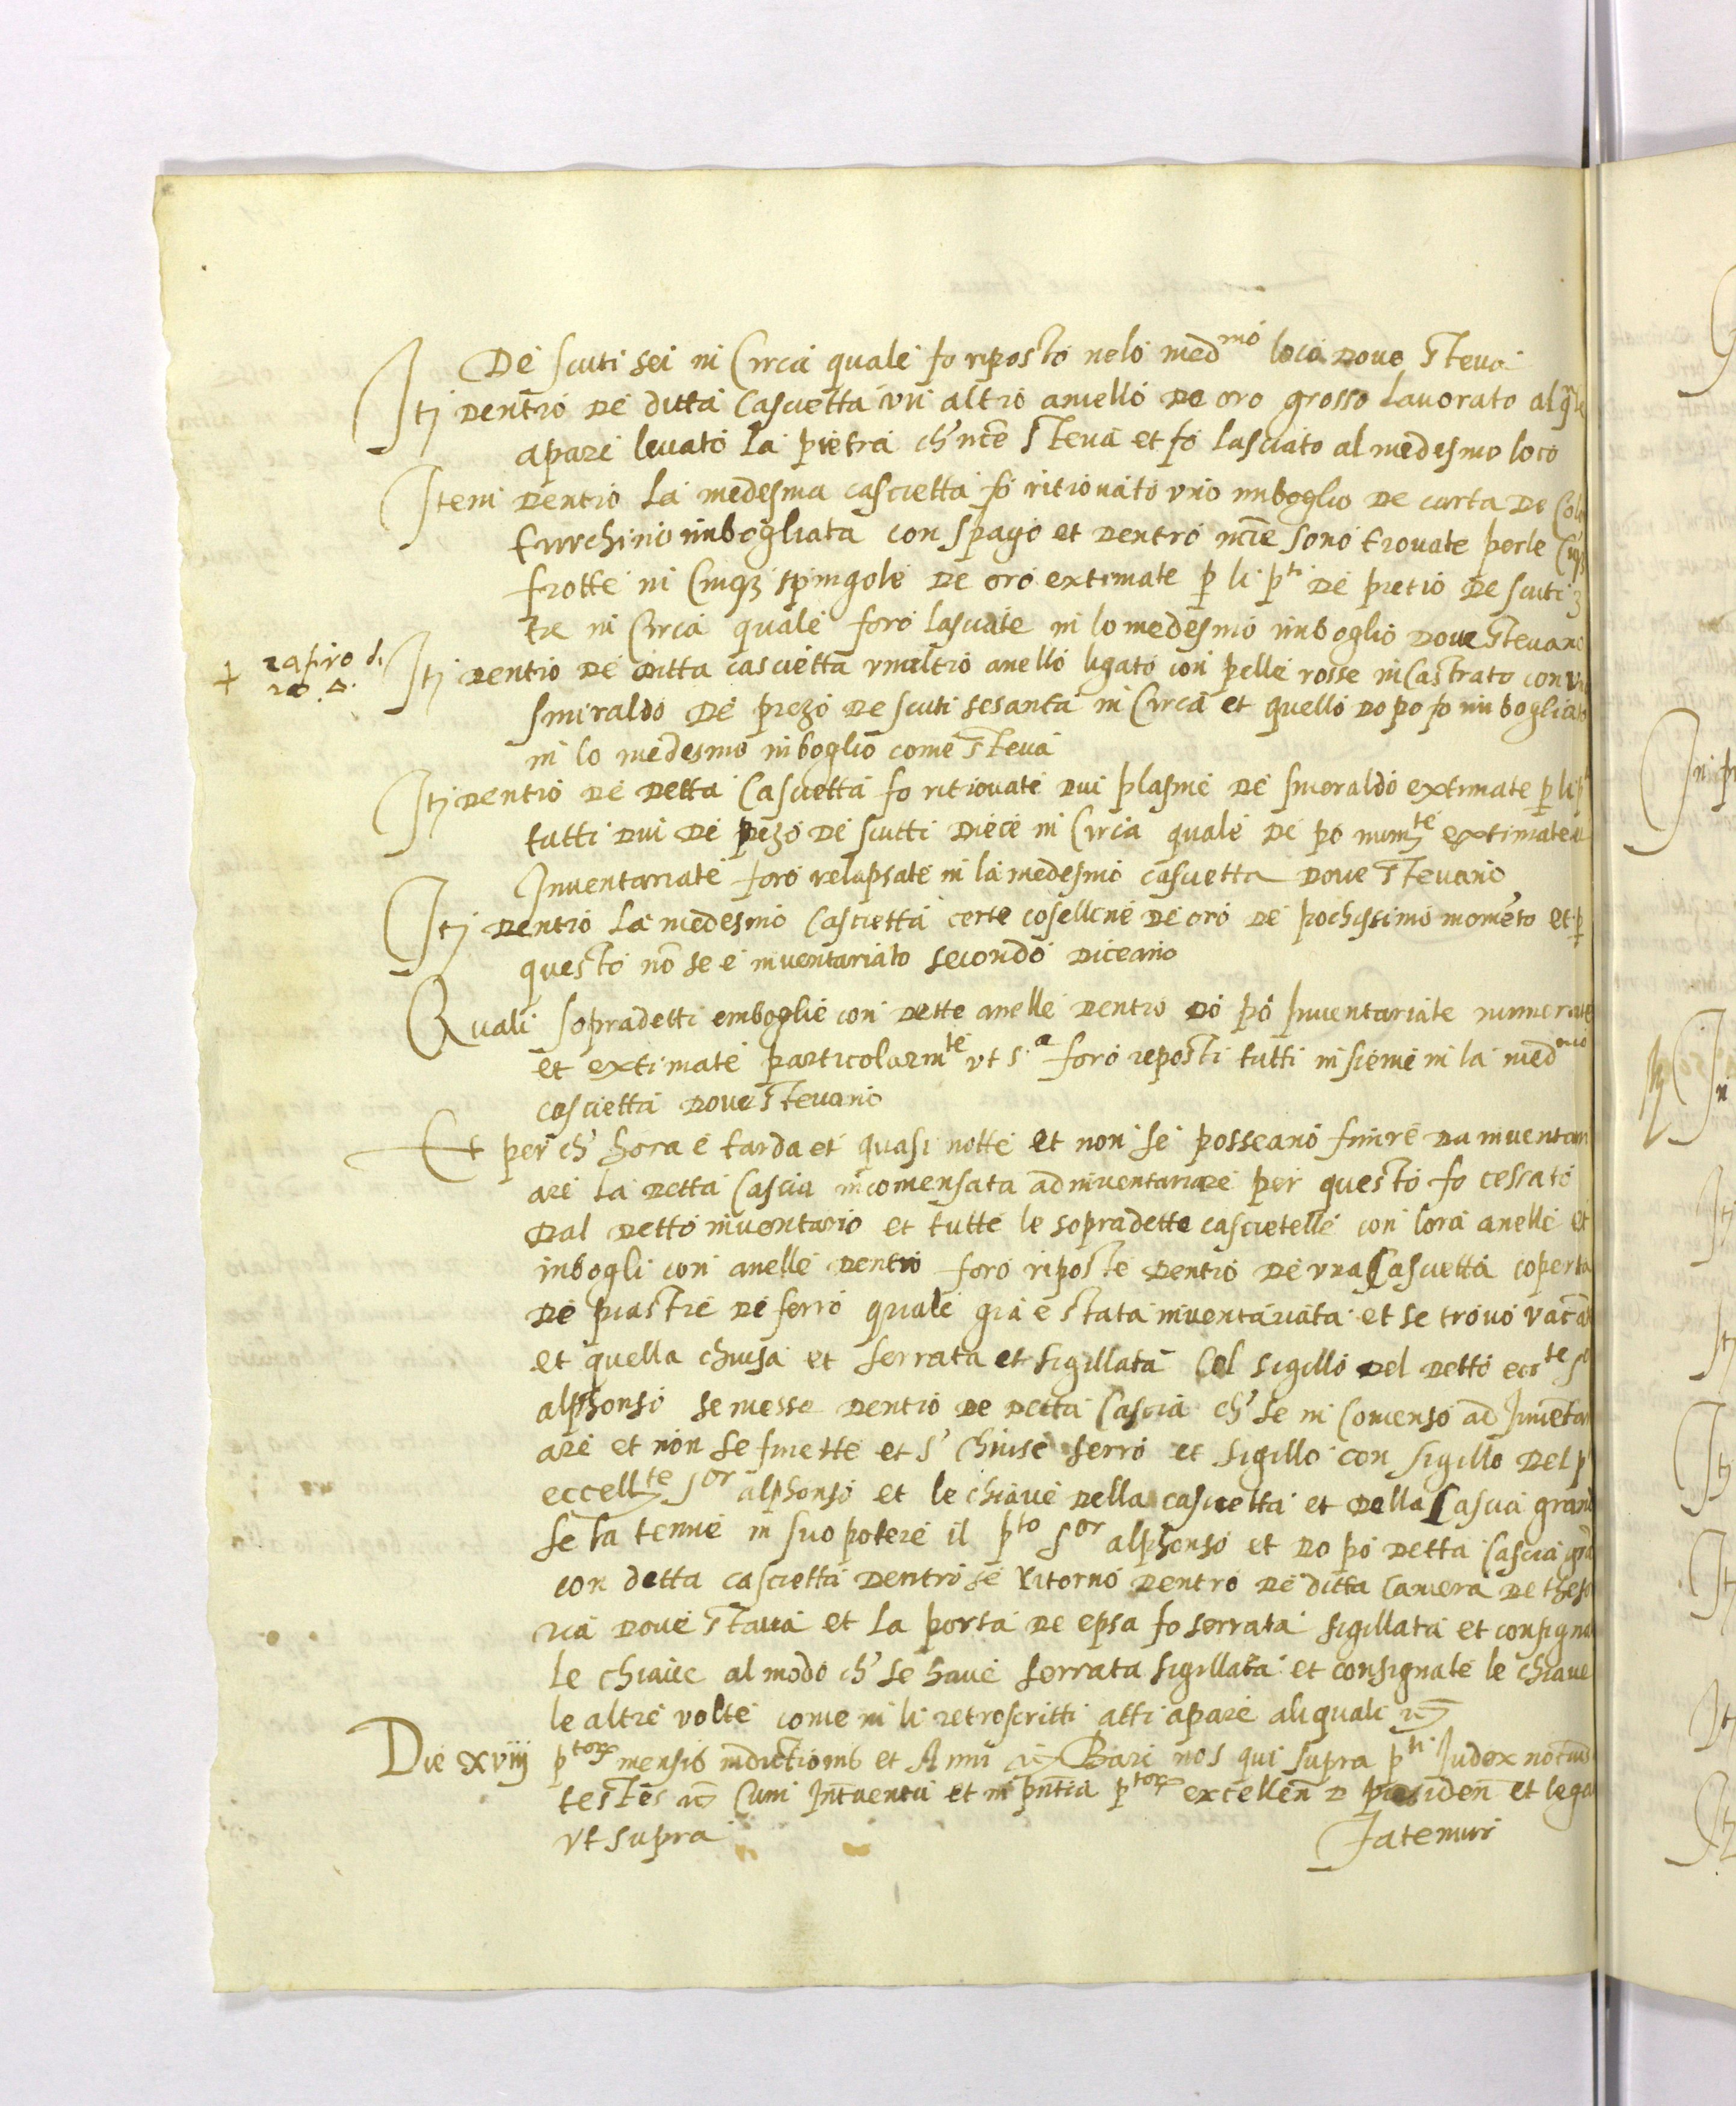 De scuti sei in Circa quale fo riposto nelo med.mo loco dove steva
Itj dentro de ditta Cascietta un altro anello de oro grosso lavorato al qle
apare levato la pietra ch' nce steva et fo lasciato al medesmo loco
Item dentro la medesma cascietta fo ritrovato uno imboglio de carta de
turchino imbogliata con spago et dentro nce sono trovate perle
frotte in Cinq3 spingole de oro extimate p li p.ti de pretio de scuti 3
tre in Circa quale foro lasciate in lo medesmo imboglio dove stevano
+ zafiro di
20 D.
Itj dentro de ditta cascietta unaltro anello ligato con pelle rosse incastrato con un
smiraldo de prezo de scuti sesanta in Circa et quello dopo fo imbogliato
in lo medesmo inboglio come steva
Itj dentro de detta Cascietta fo ritrovate dui plasme de smeraldo extimate p li
tutti dui de pezo de scutti diece in Circa quale de po num.te extimate
Inventariate foro relapsate in la medesmo cascietta dove stevano
Itj dentro la medesmo Cascietta certe coselline de oro de pochissimo momento et p
questo no se e inventariato secondo diceano
Quali sopradetti emboglie con dette anelle dentro do po Inventariate numerate
et extimate particolarm.te ut s.a foro reposti tutti insieme in la med.mo
cascietta dove stevano
Et per ch' hora e tarda et quasi notte et non se posseano finire da inventari
are la detta Cascia incomensata ad inventariare per questo fo cessato
dal detto inventario et tutte le sopradette cascietelle con lora anelle et
inbogli con anelle dentro foro riposte dentro de una Cascietta coperta
de piastre de ferro quale gia e stata inventariata et se trovo vaca
et quella chiusa et serrata et sigillata Col sigillo del detto ecc.te
alphonso se messe dentro de detta Cascia ch' se in Comenso ad Inventari
are et non se finette et s' chiuse serro et sigillo con sigillo del p
eccell.te s.or alphonso et le chiave della cascietta et della Cascia grande
se la tenne in suo potere il p.to s.or alphonso et do po detta Cascia
con detta cascietta dentro se ritorno dentro de ditta Camera de theso
ria dove stava et la porta de epsa fo serrata sigillata et consigna
le chiave al modo ch' se have serrata sigillata et consignate le chiave
le altre volte come in li retroscritti atti apare ali quali
Die xviij p.tor mensis indictionis et Anni Bari nos qui supra p.ti Iudex
testes Cum Interventu et in pntia p.tor excellen D presiden et
ut supra Fatemur